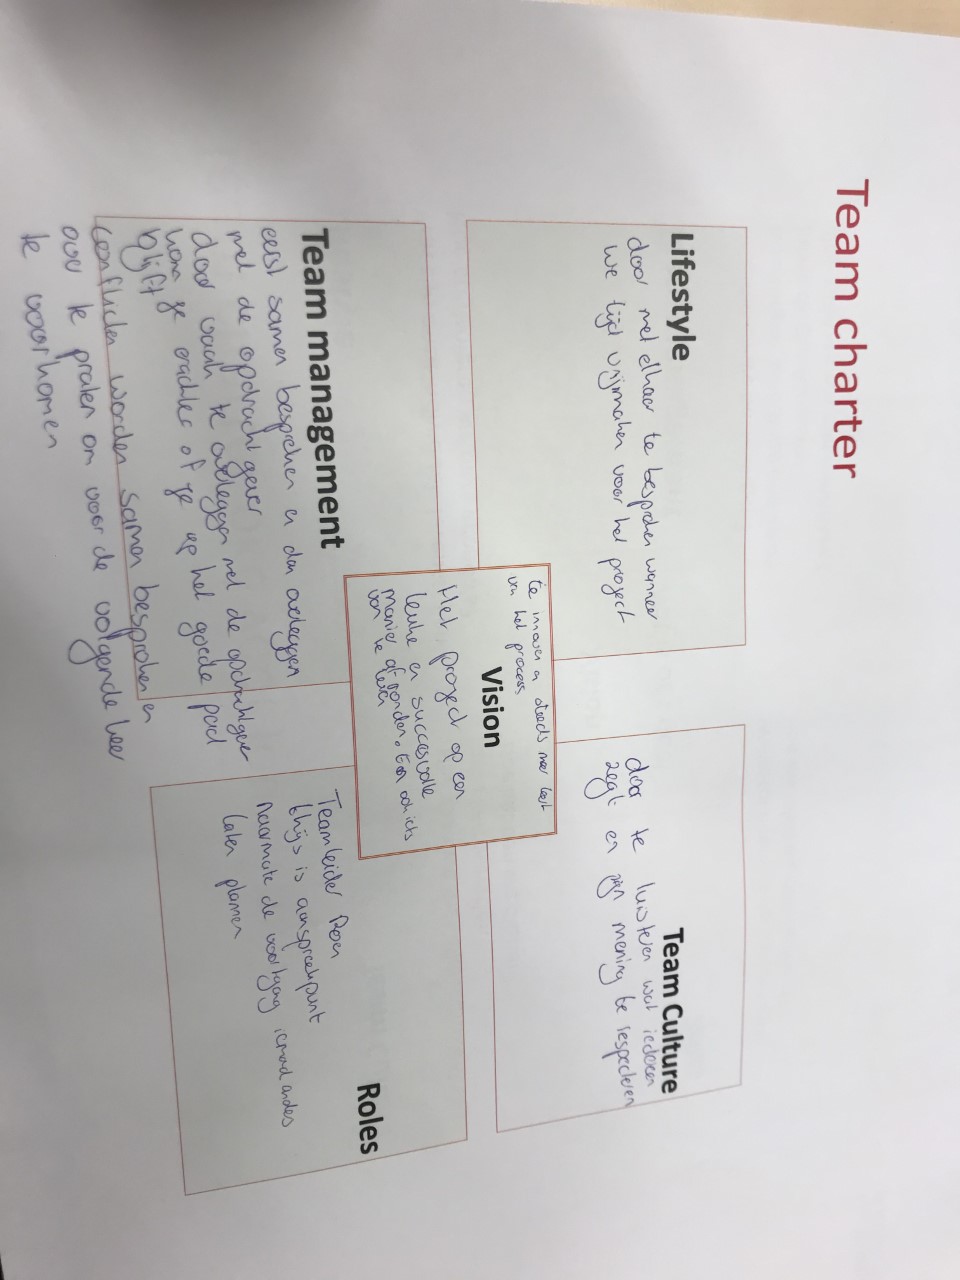 Team charter
Lifestyle
door met elkaar te bespreken wanneer
we tijd vrijmaken voor het project
Team Culture
door te luisteren wat iedereen
zegt en zijn mening te respecteren
te innoveren steeds meer
van het proces
Vision
Het project op een
leuke en succesvolle
manier afronden. En ook iets
van te leren
Team management
eerst samen bespreken en dan overleggen
met de opdrachtgever
door vaak te overleggen met de opdrachtgever
kom je erachter of je op het goede pad
blijft
conflicten worden samen besproken en
over te praten om voor de volgende keer
te voorkomen
Roles
Teamleider Roen
thijs is aanspreekpunt
naarmate de voortgang iemand anders
laten plannen